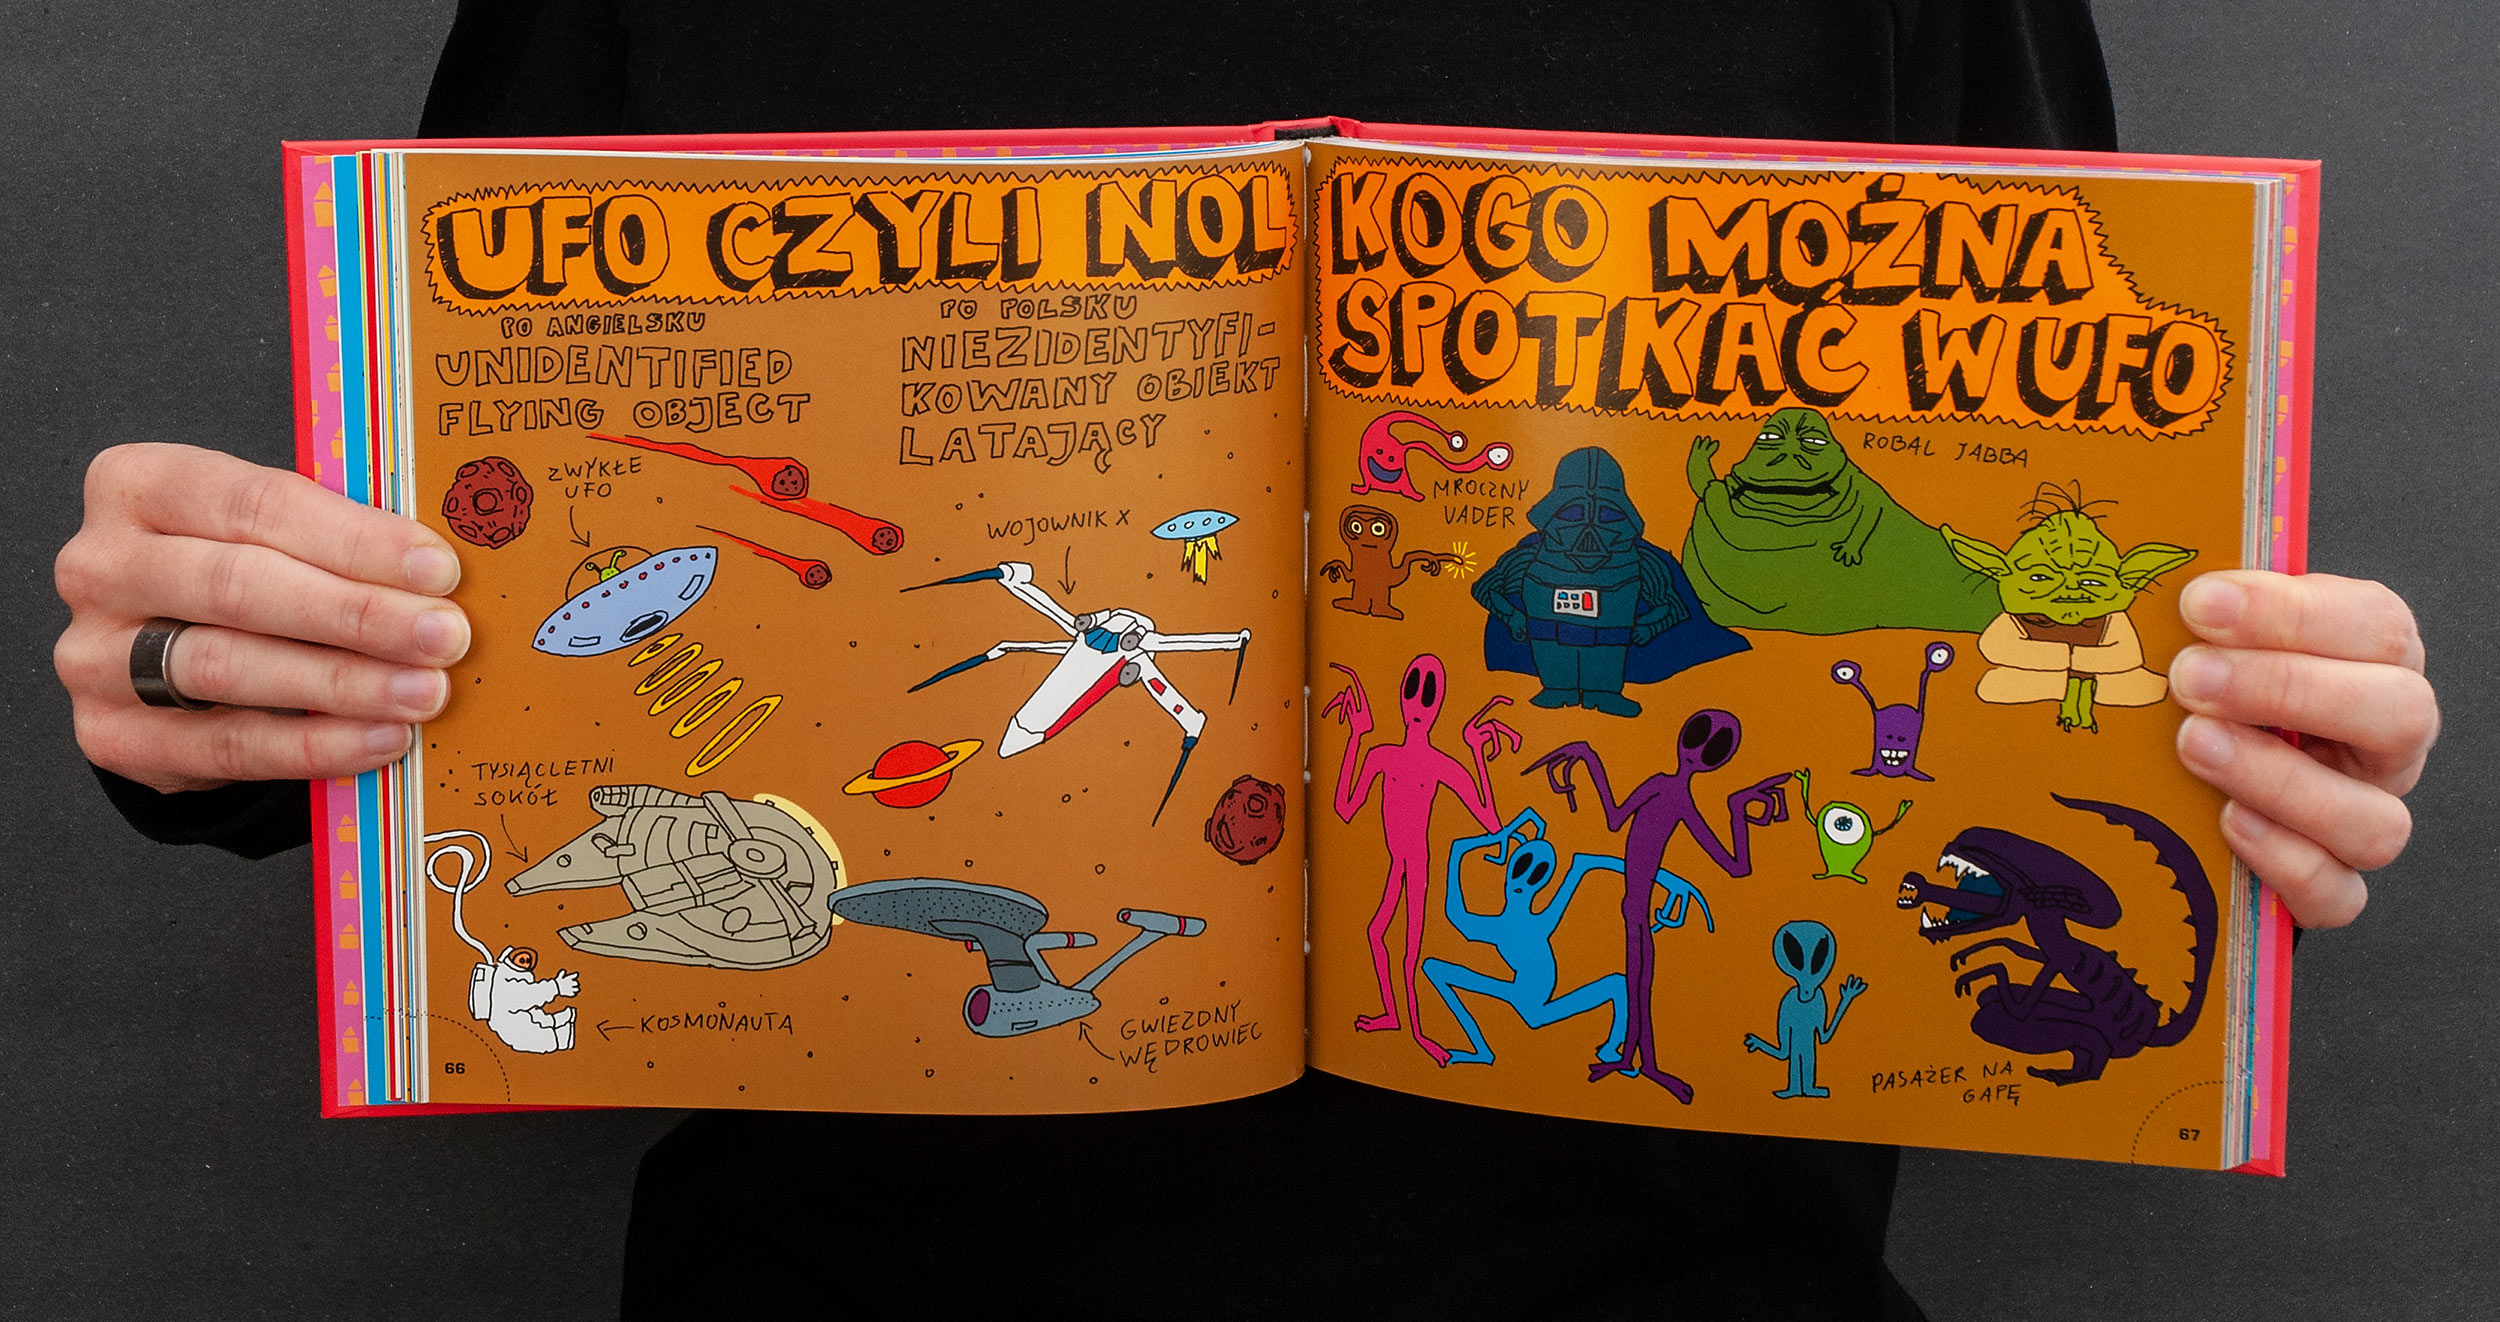 UFO CZYLI NOL
PO ANGIELSKU
UNIDENTIFIED
FLYING OBJECT
PO POLSKU
NIEZIDENTYFI-
KOWANY OBIEKT
LATAJĄCY
ZWYKŁE
UFO
WOJOWNIK X
TYSIĄCLETNI
SOKÓŁ
KOSMONAUTA
GWIEZDNY
WĘDROWIEC
66
KOGO MOŻNA
SPOTKAĆ W UFO
ROBAL JABBA
MROCZNY
VADER
PASAŻER NA
GAPĘ
67